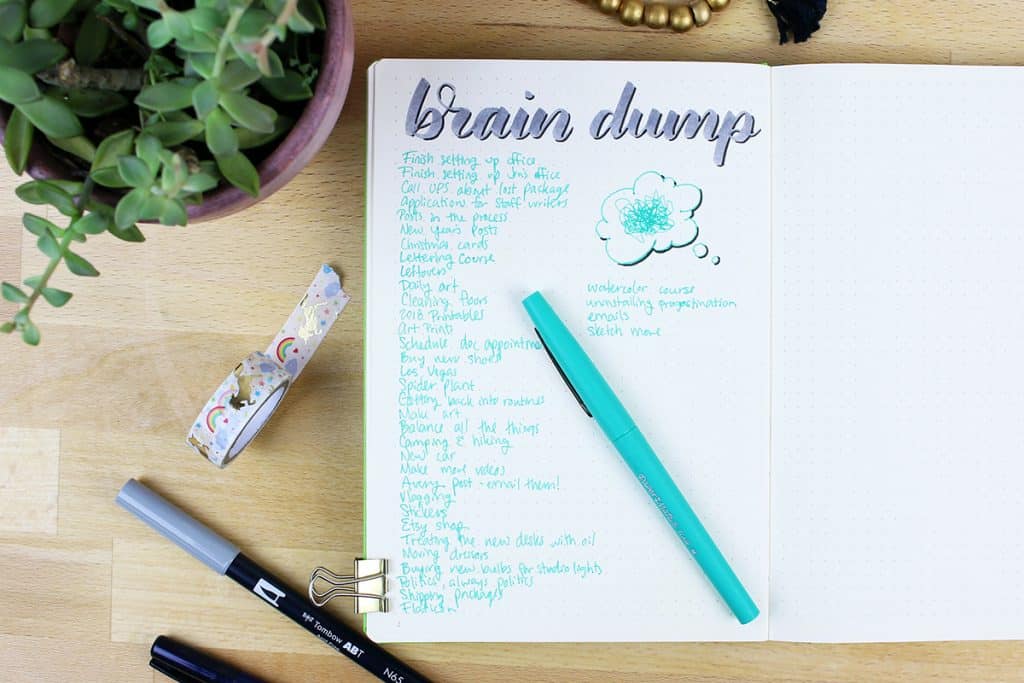 brain dump
Finish setting up office
Finish setting up Jen's office
Call UPS about lost package
Application for staff writers
Posts in the process
New Year's Posts
Christmas cards
Lettering Course
Leftovers
Daily art
Cleaning floors
2018 Printables
Art Prints
Schedule doc appointme
Buy new shoes
Las Vegas
Spider Plant
Getting back into routines
Make art
Balance all the things
Camping & hiking
New car
Make more videos
Avery post - email them!
Vlogging
Stickers
Etsy shop
Treating the new desks with oil
Moving dressers
Buying new bulbs for studio lights
Politics, always politics
Shipping packages
watercolor course
emails
sketch more
Tombow ABT
N65